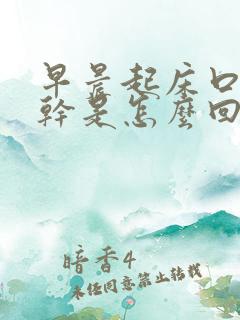 早晨起床口
幹是怎麼回
暗香4
未經同意禁止轉載